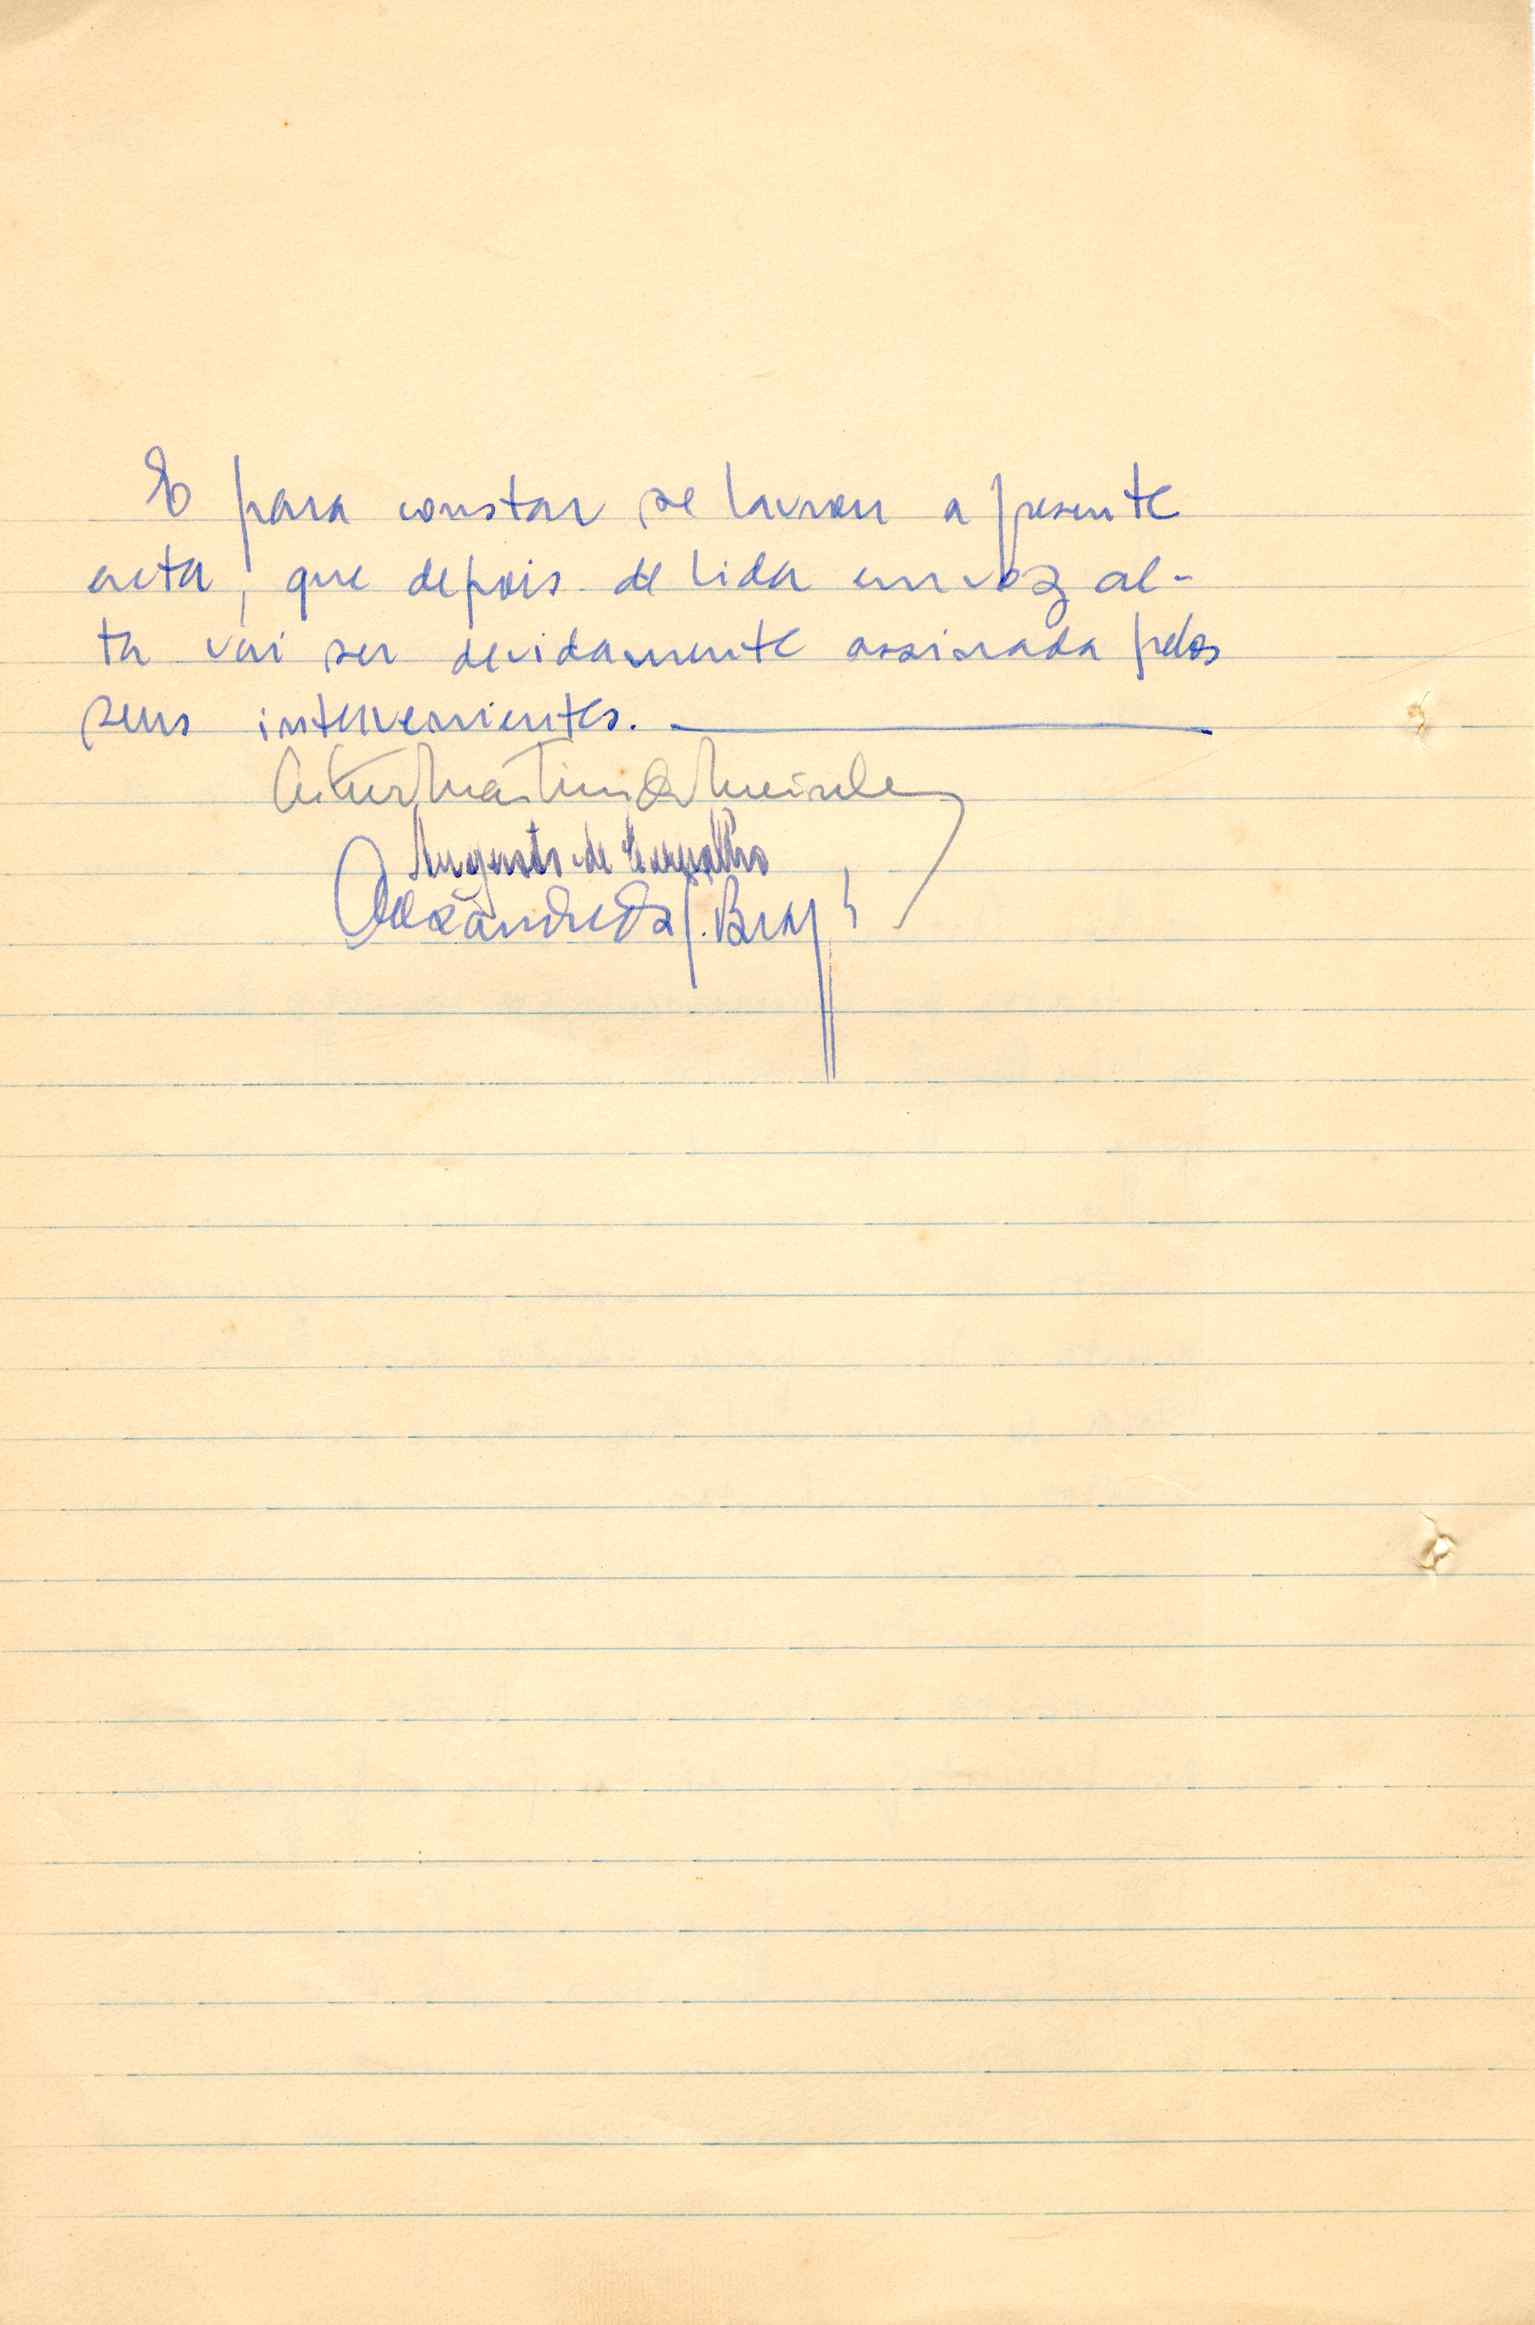 E para constar se lavrou a presente
acta, que depois de lida em voz al-
ta vai ser devidamente assinada pelos
seus intervenientes.
Artur Martins de
Augusto de Carvalho
Alexandre Braz